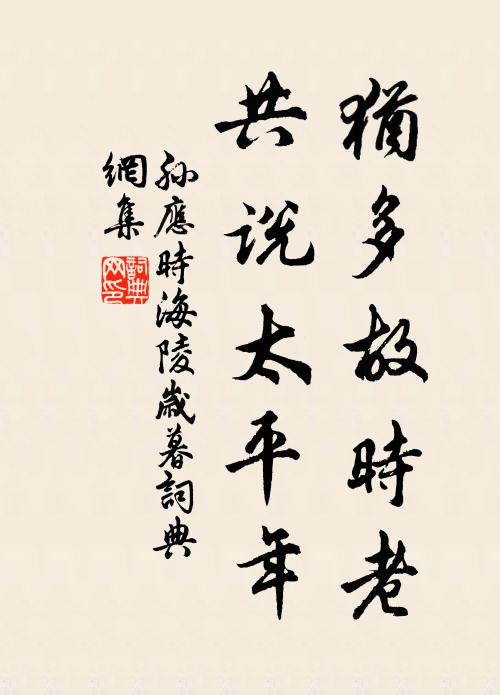 猶多故時老
共説太平年
孫應時海陵歲暮詞典
網集
詞典網印